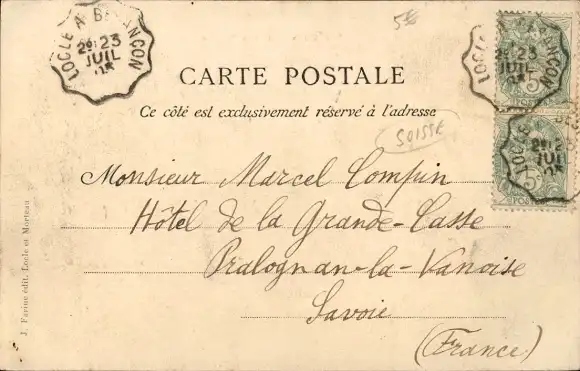 LOCLE A BESANÇON
2º 23
JUIL
05
5
LOCLE A BESANÇON
2º 23
JUIL
LOCLE
2º 23
JUIL
05
POSTES
5
POSTE
CARTE POSTALE
Ce côté est exclusivement réservé à l'adresse
SUISSE
Monsieur Marcel Compin
Hôtel de la Grande-Casse
Pralognan-la-Vanoise
Savoie
(France)
J. Farine édit. Locle et Morteau